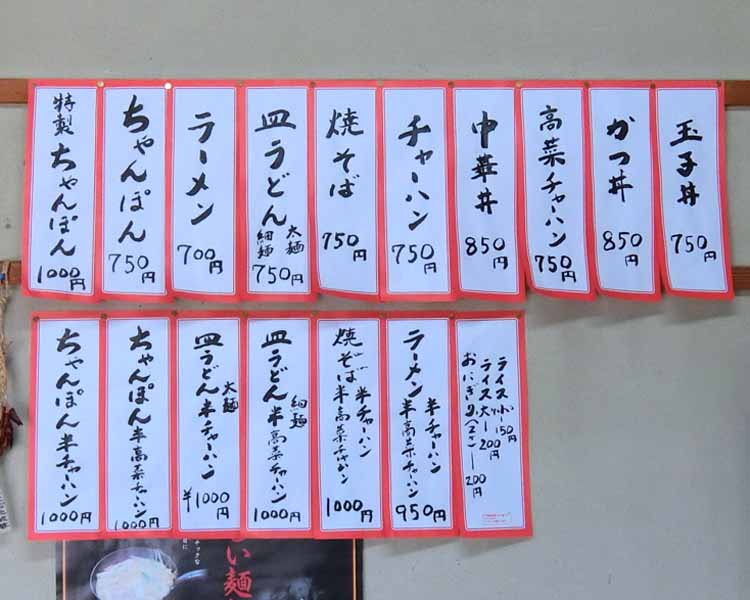 玉子丼
750円
かつ丼
850円
高菜チャーハン
750円
中華丼
850円
チャーハン
750円
焼そば
750円
皿うどん
太麺
細麺
750円
ラーメン
700円
ちゃんぽん
750円
特製ちゃんぽん
1000円
ライス小ー150円
ライス大ー200円
おにぎり(2ケ)ー200円
ラーメン
半チャーハン
半高菜チャーハン
950円
焼そば
半チャーハン
半高菜チャーハン
1000円
皿うどん
細麺
半高菜チャーハン
1000円
皿うどん
太麺
半チャーハン
¥1000円
ちゃんぽん半高菜チャーハン
1000円
ちゃんぽん半チャーハン
1000円
い麺